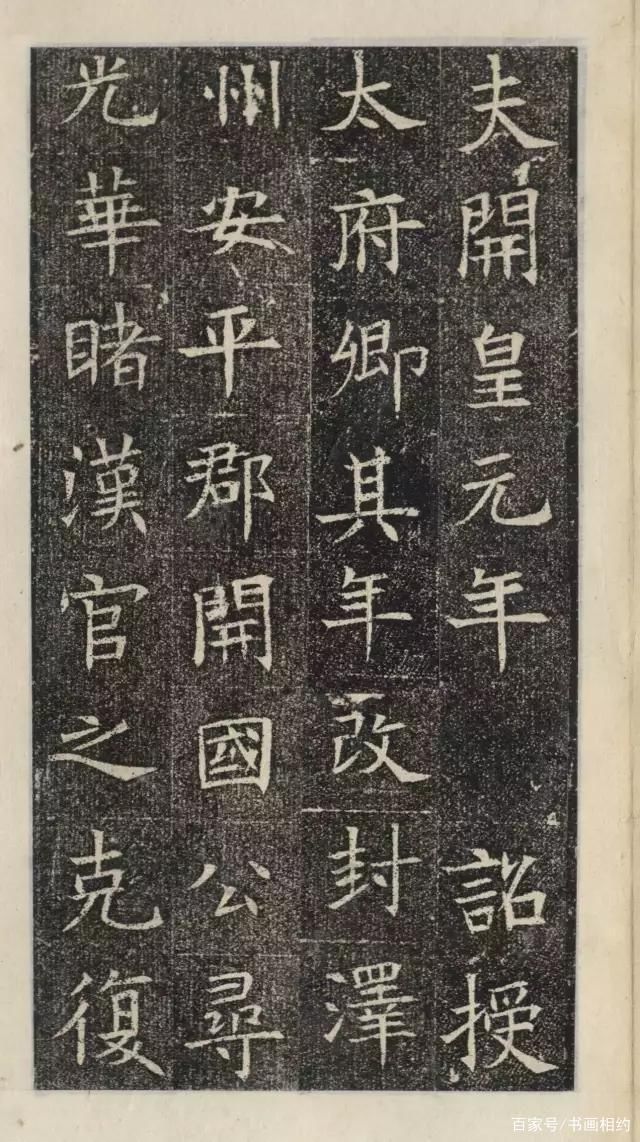 夫開皇元年 詔授
太府卿其年改封澤
州安平郡開國公尋
光華睹漢官之克復
百家号/书画相约